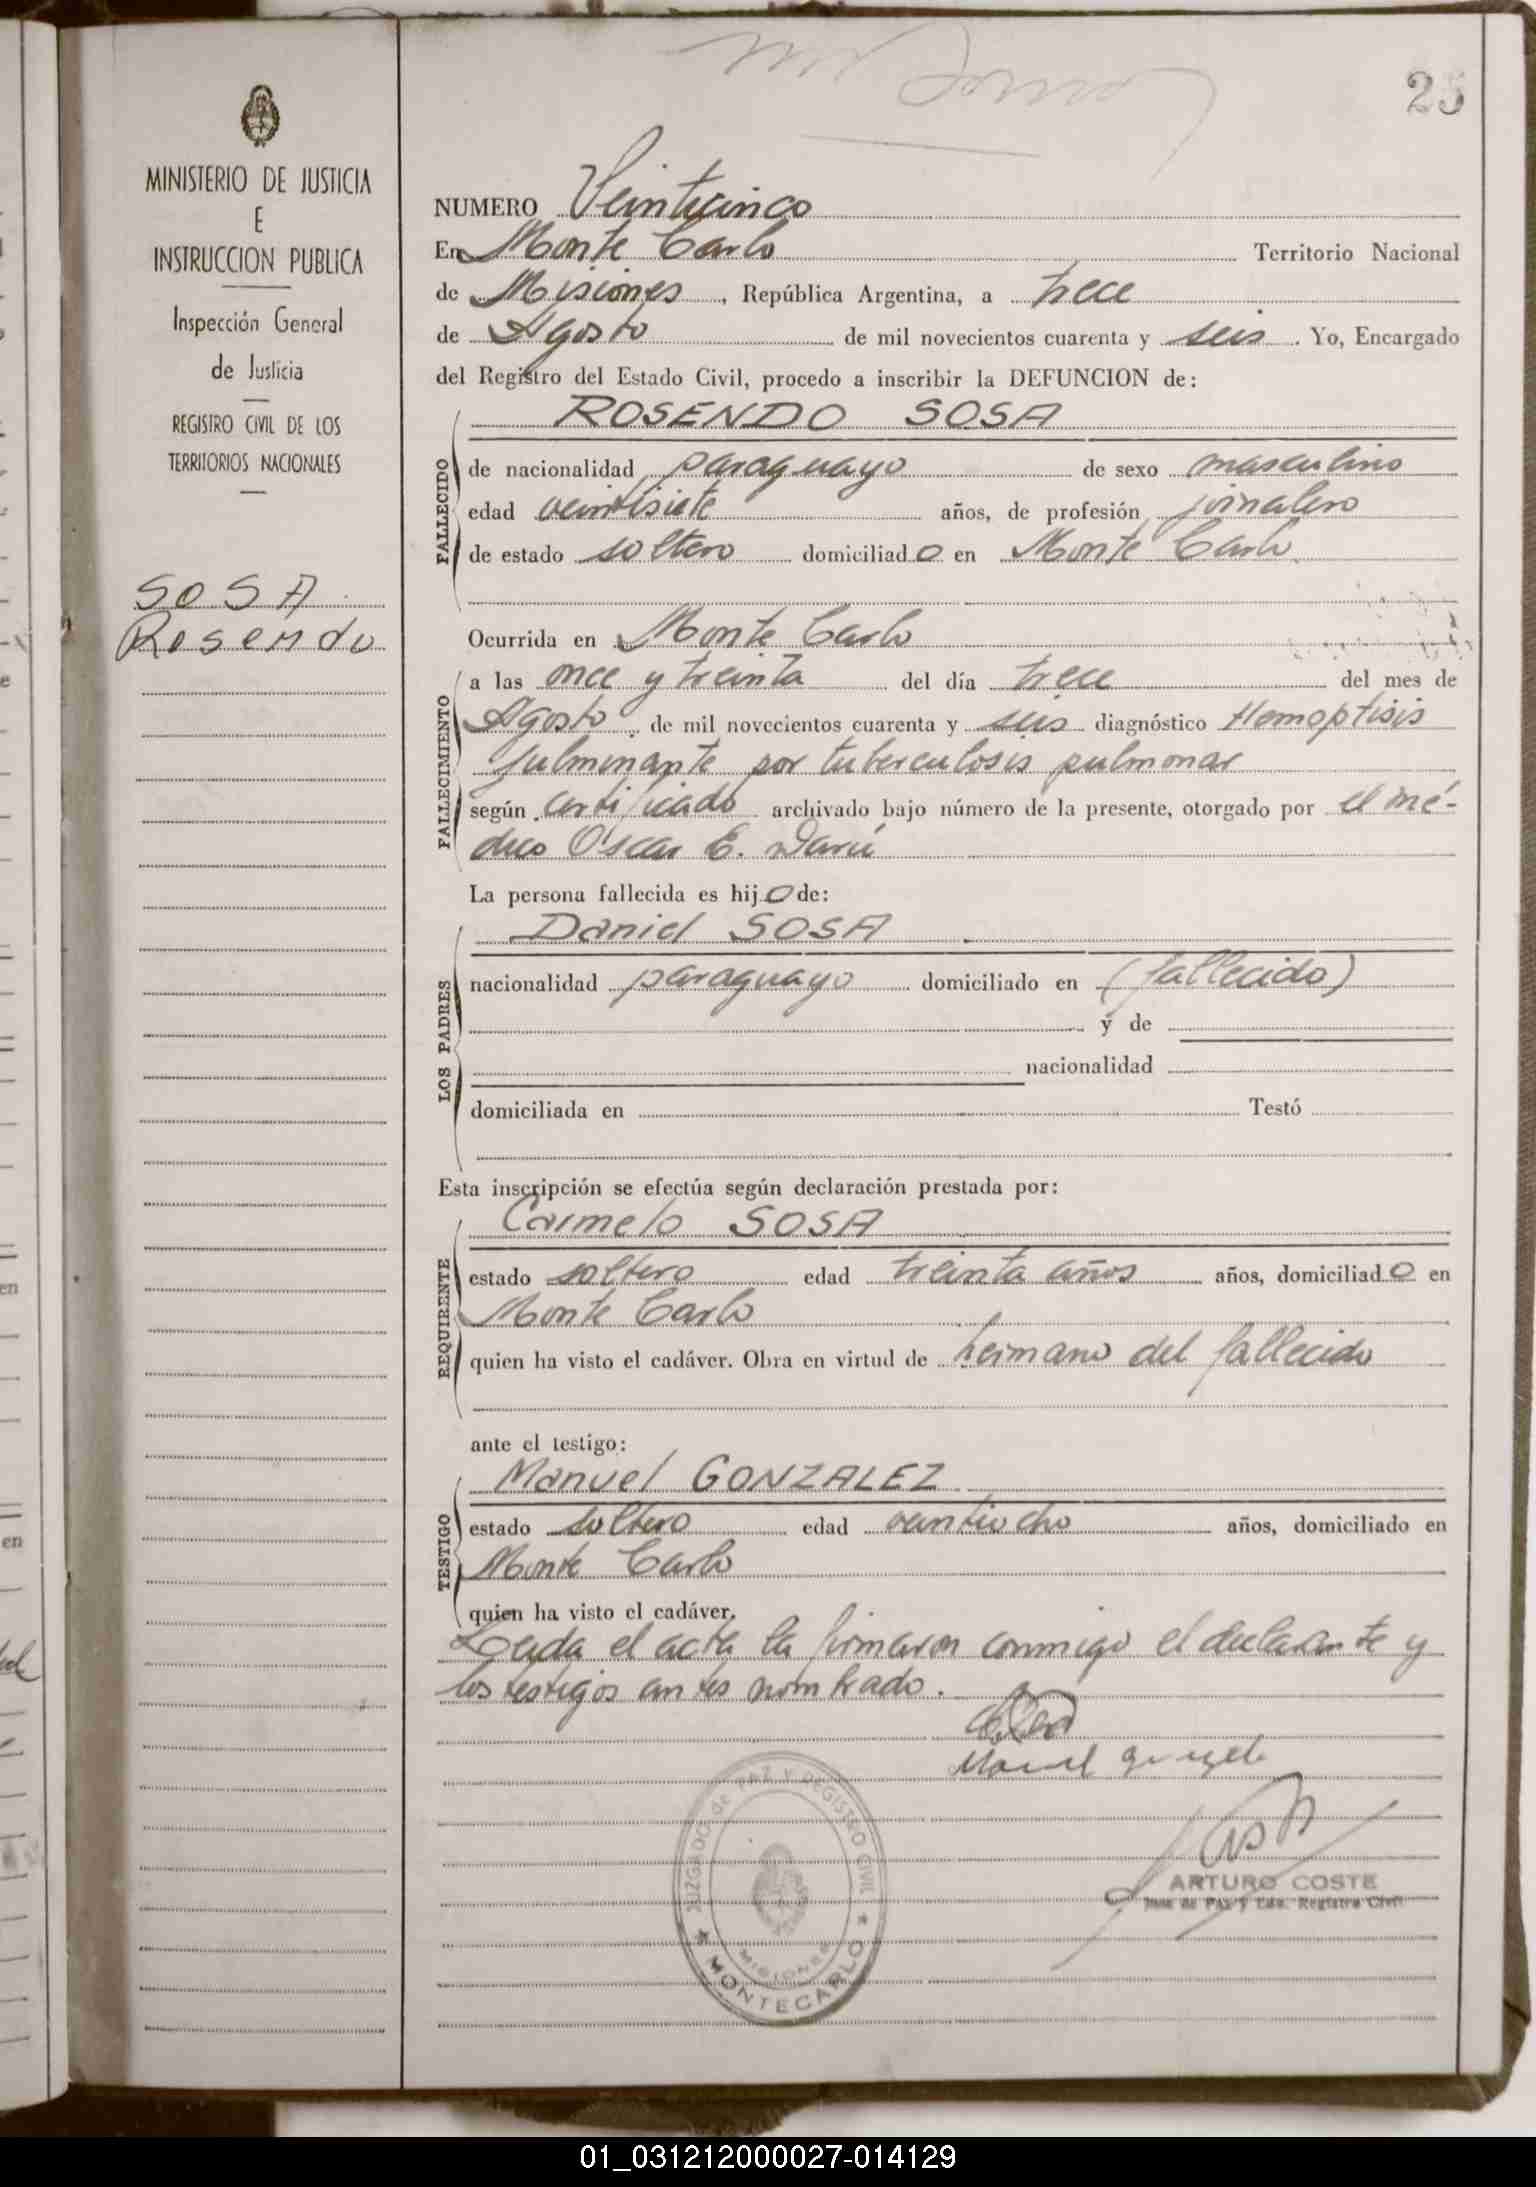 23
MINISTERIO DE JUSTICIA
E
INSTRUCCION PUBLICA
Inspección General
de Justicia
REGISTRO CIVIL DE LOS
TERRITORIOS NACIONALES
SOSA
Rosendo
NUMERO Veinticinco
En Monte Carlo Territorio Nacional
de Misiones, República Argentina, a trece
de Agosto de mil novecientos cuarenta y seis. Yo, Encargado
del Registro del Estado Civil, procedo a inscribir la DEFUNCION de:
ROSENDO SOSA
FALLECIDO
de nacionalidad paraguayo de sexo masculino
edad veintisiete años, de profesión jornalero
de estado soltero domiciliado en Monte Carlo
Ocurrida en Monte Carlo
FALLECIMIENTO
a las once y treinta del día trece del mes de
Agosto de mil novecientos cuarenta y seis diagnóstico Hemoptisis
fulminante por tuberculosis pulmonar
según certificado archivado bajo número de la presente, otorgado por el mé-
dico Oscar E. Darú
La persona fallecida es hijo de:
LOS PADRES
Daniel SOSA
nacionalidad paraguayo domiciliado en (fallecido)
y de
nacionalidad
domiciliada en Testó
Esta inscripción se efectúa según declaración prestada por:
REQUIRENTE
Carmelo SOSA
estado soltero edad treinta años años, domiciliado en
Monte Carlo
quien ha visto el cadáver. Obra en virtud de hermano del fallecido
ante el testigo:
TESTIGO
Manuel GONZALEZ
estado soltero edad veintiocho años, domiciliado en
Monte Carlo
quien ha visto el cadáver.
Leida el acta la firmaron conmigo el declarante y
los testigos antes nombrado.
JUZGADO de PAZ Y REGISTRO CIVIL
MISIONES
★ MONTECARLO ★
ARTURO COSTE
Juez de Paz y Enc. Registro Civil
01_031212000027-014129